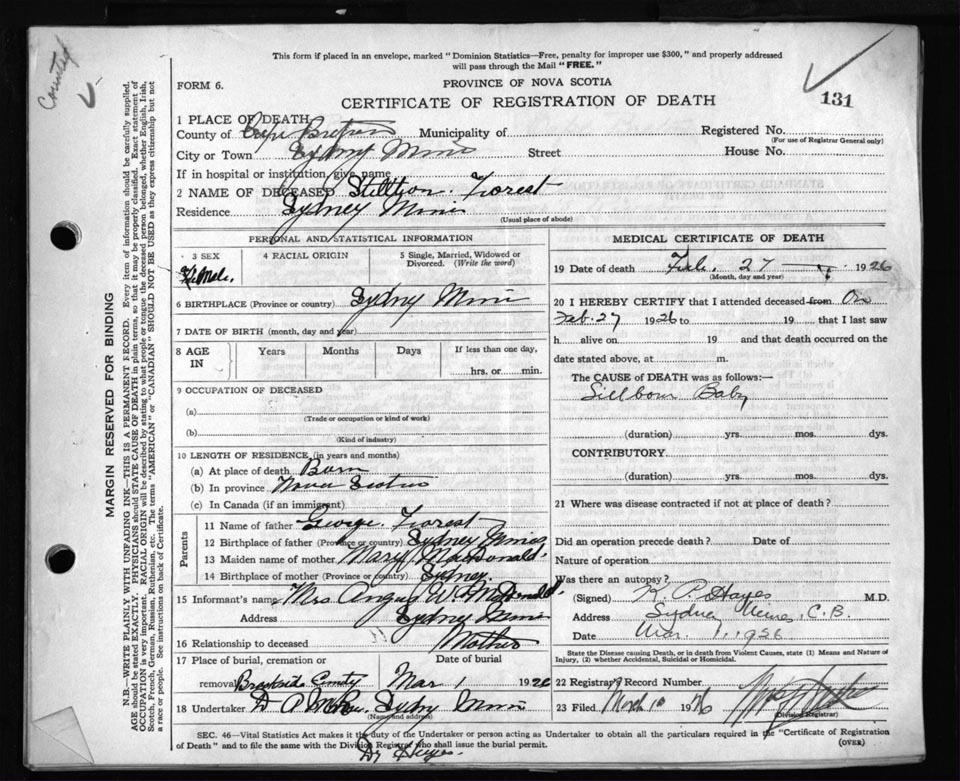 County
This form if placed in an envelope, marked "Dominion Statistics—Free, penalty for improper use $300," and properly addressed
will pass through the Mail "FREE."
FORM 6.
PROVINCE OF NOVA SCOTIA
CERTIFICATE OF REGISTRATION OF DEATH
131
1 PLACE OF DEATH
County of Cape Breton Municipality of Registered No.
(For use of Registrar General only)
City or Town Sydney Mines Street House No.
If in hospital or institution, give name
2 NAME OF DECEASED Forest
Residence Sydney Mines
(Usual place of abode)
PERSONAL AND STATISTICAL INFORMATION
3 SEX 4 RACIAL ORIGIN 5 Single, Married, Widowed or Divorced. (Write the word)
6 BIRTHPLACE (Province or country) Sydney Mines
7 DATE OF BIRTH (month, day and year)
8 AGE IN Years Months Days If less than one day,
hrs. or min.
9 OCCUPATION OF DECEASED
(a)
(Trade or occupation or kind of work)
(b)
(Kind of industry)
10 LENGTH OF RESIDENCE (in years and months)
(a) At place of death Born
(b) In province Nova Scotia
(c) In Canada (if an immigrant)
Parents
11 Name of father George Forest
12 Birthplace of father (Province or country) Sydney Mines
13 Maiden name of mother Mary MacDonald
14 Birthplace of mother (Province or country) Sydney.
15 Informant's name Mrs Angus W. McDonald
Address Sydney Mines
16 Relationship to deceased Mother
17 Place of burial, cremation or Date of burial
removal County Mar 1 1926
18 Undertaker D A Sydney Mines
(Name and address)
MEDICAL CERTIFICATE OF DEATH
19 Date of death Feb. 27 1926
(Month, day and year)
20 I HEREBY CERTIFY that I attended deceased from On
Feb. 27 1926 to 19 that I last saw
h alive on 19 and that death occurred on the
date stated above, at m.
The CAUSE of DEATH was as follows:—
Stillborn Baby
(duration) yrs. mos. dys.
CONTRIBUTORY
(duration) yrs. mos. dys.
21 Where was disease contracted if not at place of death?
Did an operation precede death? Date of
Nature of operation
Was there an autopsy?
(Signed) Hayes M.D.
Address Sydney Mines, C.B.
Date Mar. 1. 1926
State the Disease causing Death, or in death from Violent Causes, state (1) Means and Nature of
Injury, (2) whether Accidental, Suicidal or Homicidal.
22 Registrar's Record Number
23 Filed March 1926
(Division Registrar)
SEC. 46—Vital Statistics Act makes it the duty of the Undertaker or person acting as Undertaker to obtain all the particulars required in the "Certificate of Registration
of Death" and to file the same with the Division Registrar who shall issue the burial permit. (OVER)
Dr Hayes.
MARGIN RESERVED FOR BINDING
N.B.—WRITE PLAINLY WITH UNFADING INK—THIS IS A PERMANENT RECORD. Every item of information should be carefully supplied.
AGE should be stated EXACTLY. PHYSICIANS should STATE CAUSE OF DEATH in plain terms, so that it may be properly classified. Exact statement of
OCCUPATION is very important. RACIAL ORIGIN will be described by stating to what people or tongue the deceased person belonged, whether English, Irish,
Scotch, French, German, Russian, Ruthenian, etc. The terms "AMERICAN" or "CANADIAN" SHOULD NOT BE USED as they express citizenship but not
a race or people. See instructions on back of Certificate.